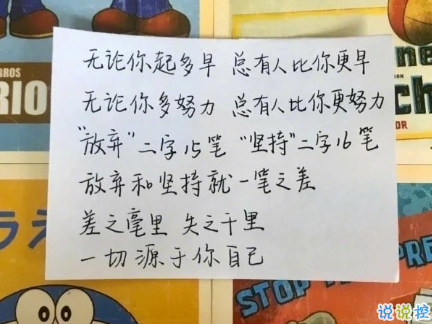 无论你起多早 总有人比你更早
无论你多努力 总有人比你更努力
"放弃"二字15笔 "坚持"二字16笔
放弃和坚持就一笔之差
差之毫里 失之千里
一切源于你自己
BROS
RIO
ne
ch
DOR
うえ
STOP
PRE
说说控